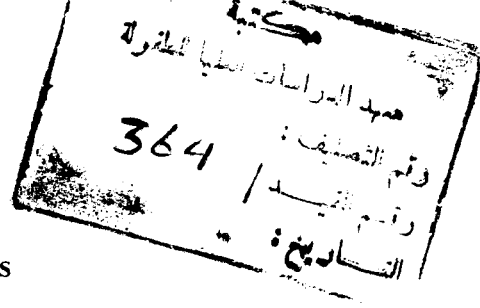 مكتبة
معهد الدراسات العليا للطفولة
رقم التصنيف :
364
رقم القيد /
التاريخ :
s